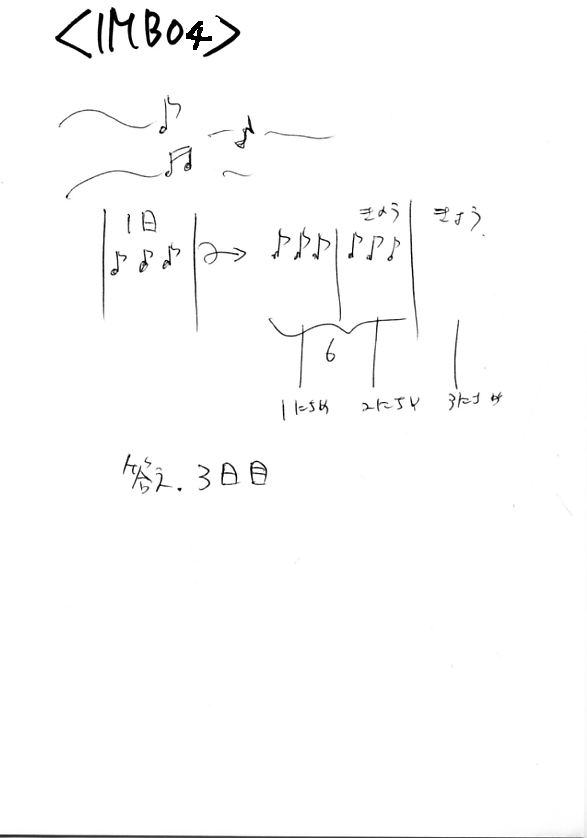 <IMB04>
1日
きょう きょう
6
1にちめ 2にちめ 3にちめ
答え. 3日目